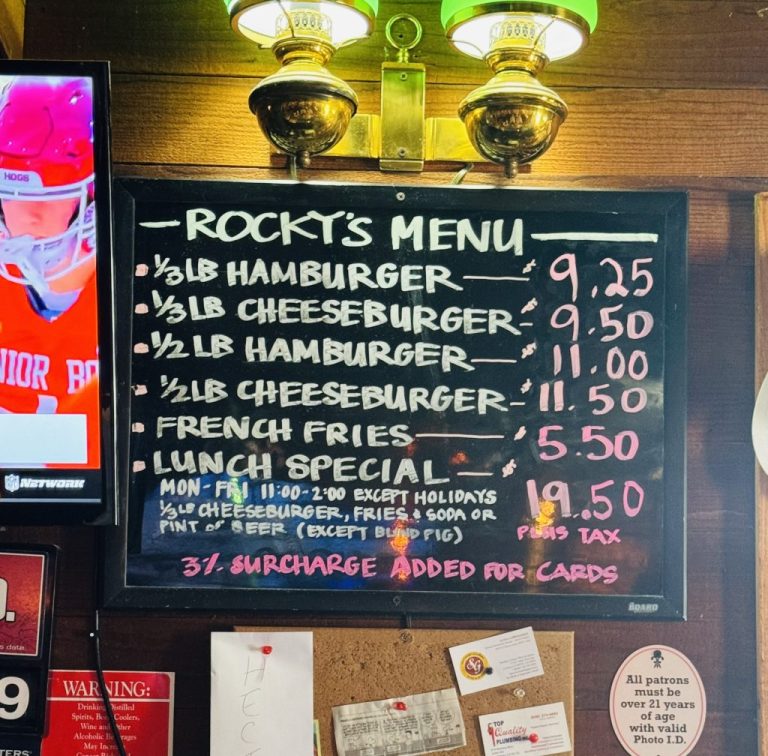 HOGS
NIOR BO
NFL NETWORK
ROCKY'S MENU
1/3 LB HAMBURGER $ 9.25
1/3 LB CHEESEBURGER $ 9.50
1/2 LB HAMBURGER $ 11.00
1/2 LB CHEESEBURGER $ 11.50
FRENCH FRIES $ 5.50
LUNCH SPECIAL $ 19.50
MON-FRI 11:00-2:00 EXCEPT HOLIDAYS
1/3 LB CHEESEBURGER, FRIES & SODA OR
PINT of BEER (EXCEPT BLIND PIG) PLUS TAX
3% SURCHARGE ADDED FOR CARDS
BOARD
WARNING:
Drinking Distilled
Spirits, Beer, Coolers,
Wine and Other
Alcoholic Beverages
May Increase
HEC
SG
TOP
Quality
PLUMBING
All patrons
must be
over 21 years
of age
with valid
Photo I.D.
9